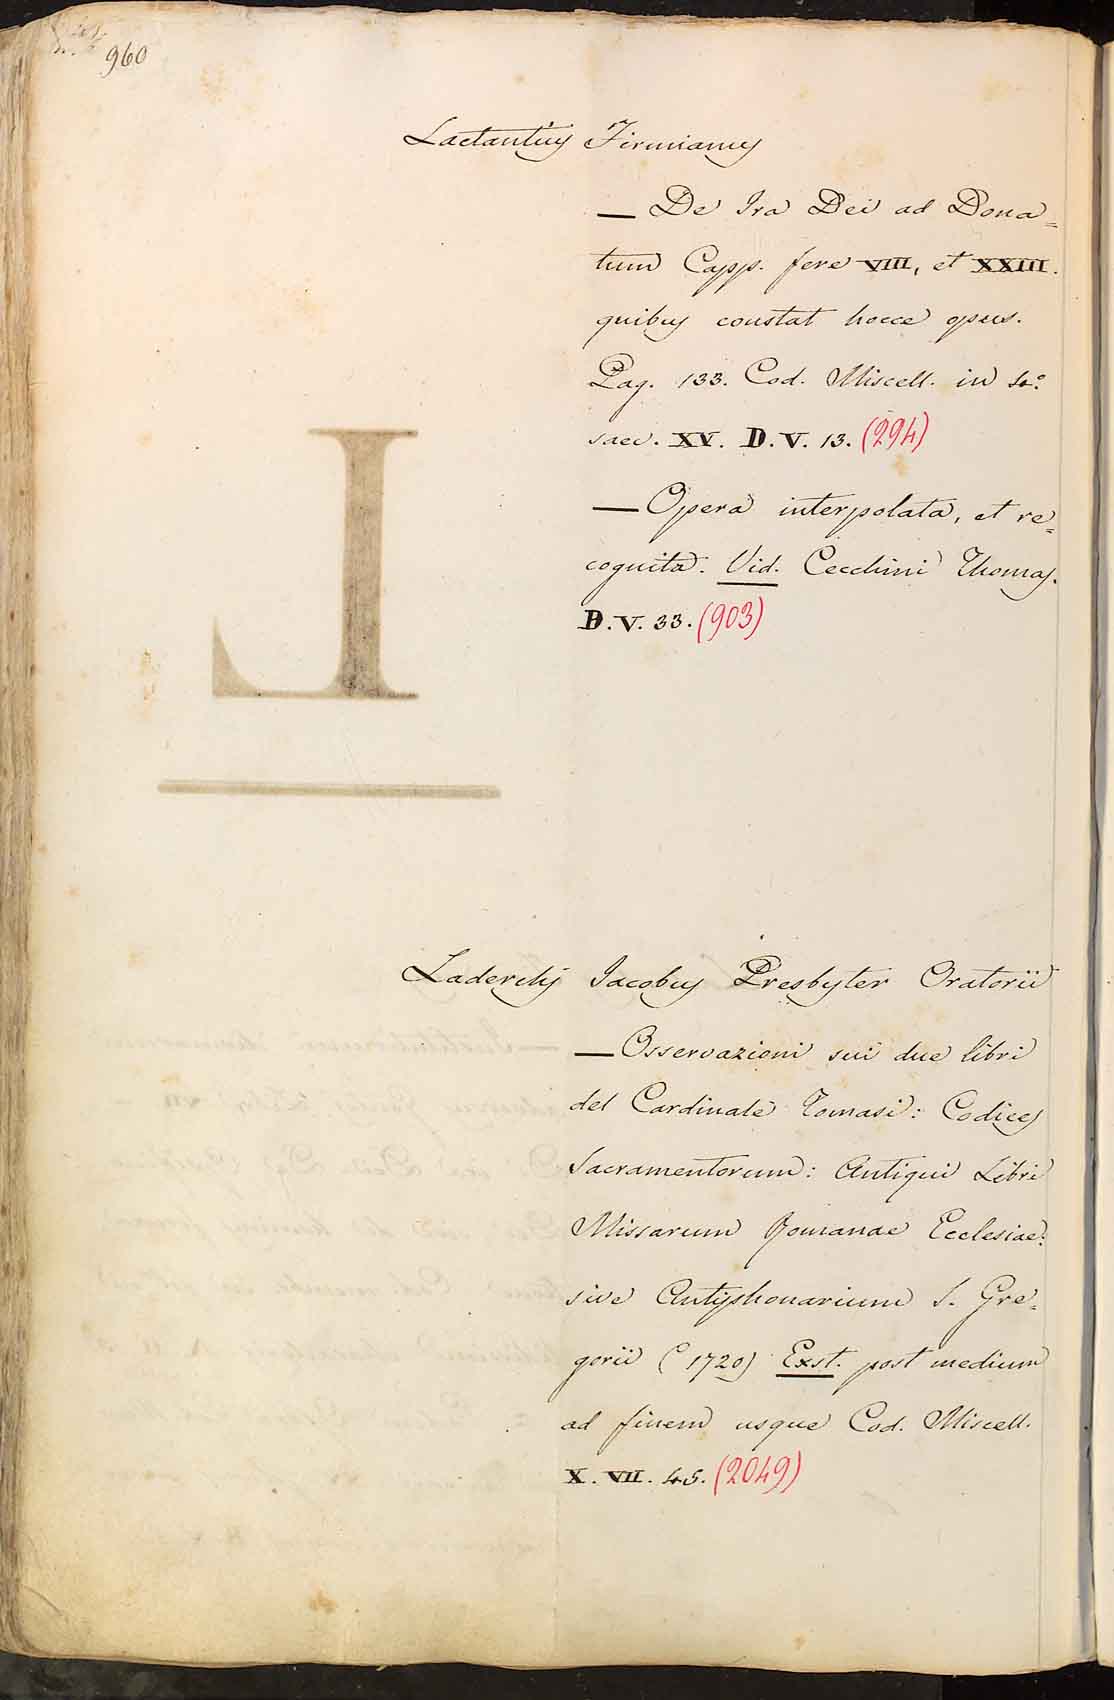 960
Lactantius Firmianus
— De Ira Dei ad Dona=
tum Capp. fere VIII, et XXIII.
quibus constat hocce opus.
Pag. 133. Cod. Miscell. in 4.º
saec. XV. D. V. 13. (294)
— Opera interpolata, et re=
cognita. Vid. Cecchini Thomas.
D. V. 33. (903)
Laderchij Jacobus Presbyter Oratorii
— Osservazioni sui due libri
del Cardinale Tomasi: Codices
Sacramentorum: Antiqui Libri
Missarum Romanae Ecclesiae:
sive Antiphonarium S. Gre=
gorii (1720) Exst. post medium
ad finem usque Cod. Miscell.
X. VII. 45. (2049)